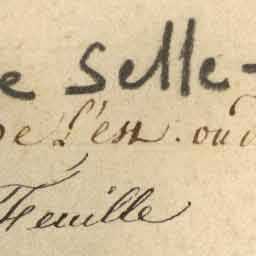 e Selle-
de L'est. ou d
feuille